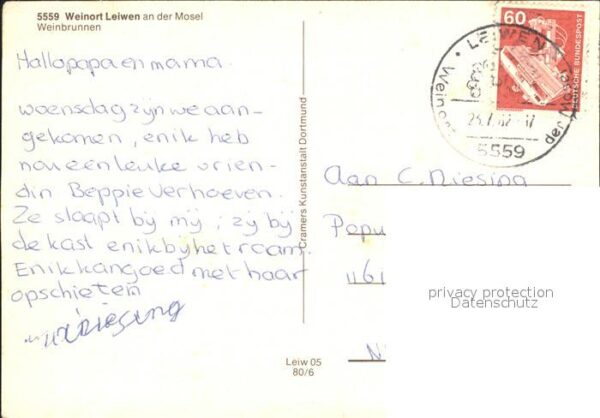 5559 Weinort Leiwen an der Mosel
Weinbrunnen
Hallo papa en mama.
woensdag zijn we aan-
gekomen, en ik heb
nou een leuke vrien-
din Beppie Verhoeven.
Ze slaapt bij mij, zij bij
de kast en ik bij het raam.
En ik kan goed met haar
opschieten
Cramers Kunstanstalt Dortmund
Leiw 05
80/6
60
DEUTSCHE BUNDESPOST
LEIWEN
Weinort
der Mosel
5559
Aan C. Niesing
Popu
1161
N
privacy protection
Datenschutz